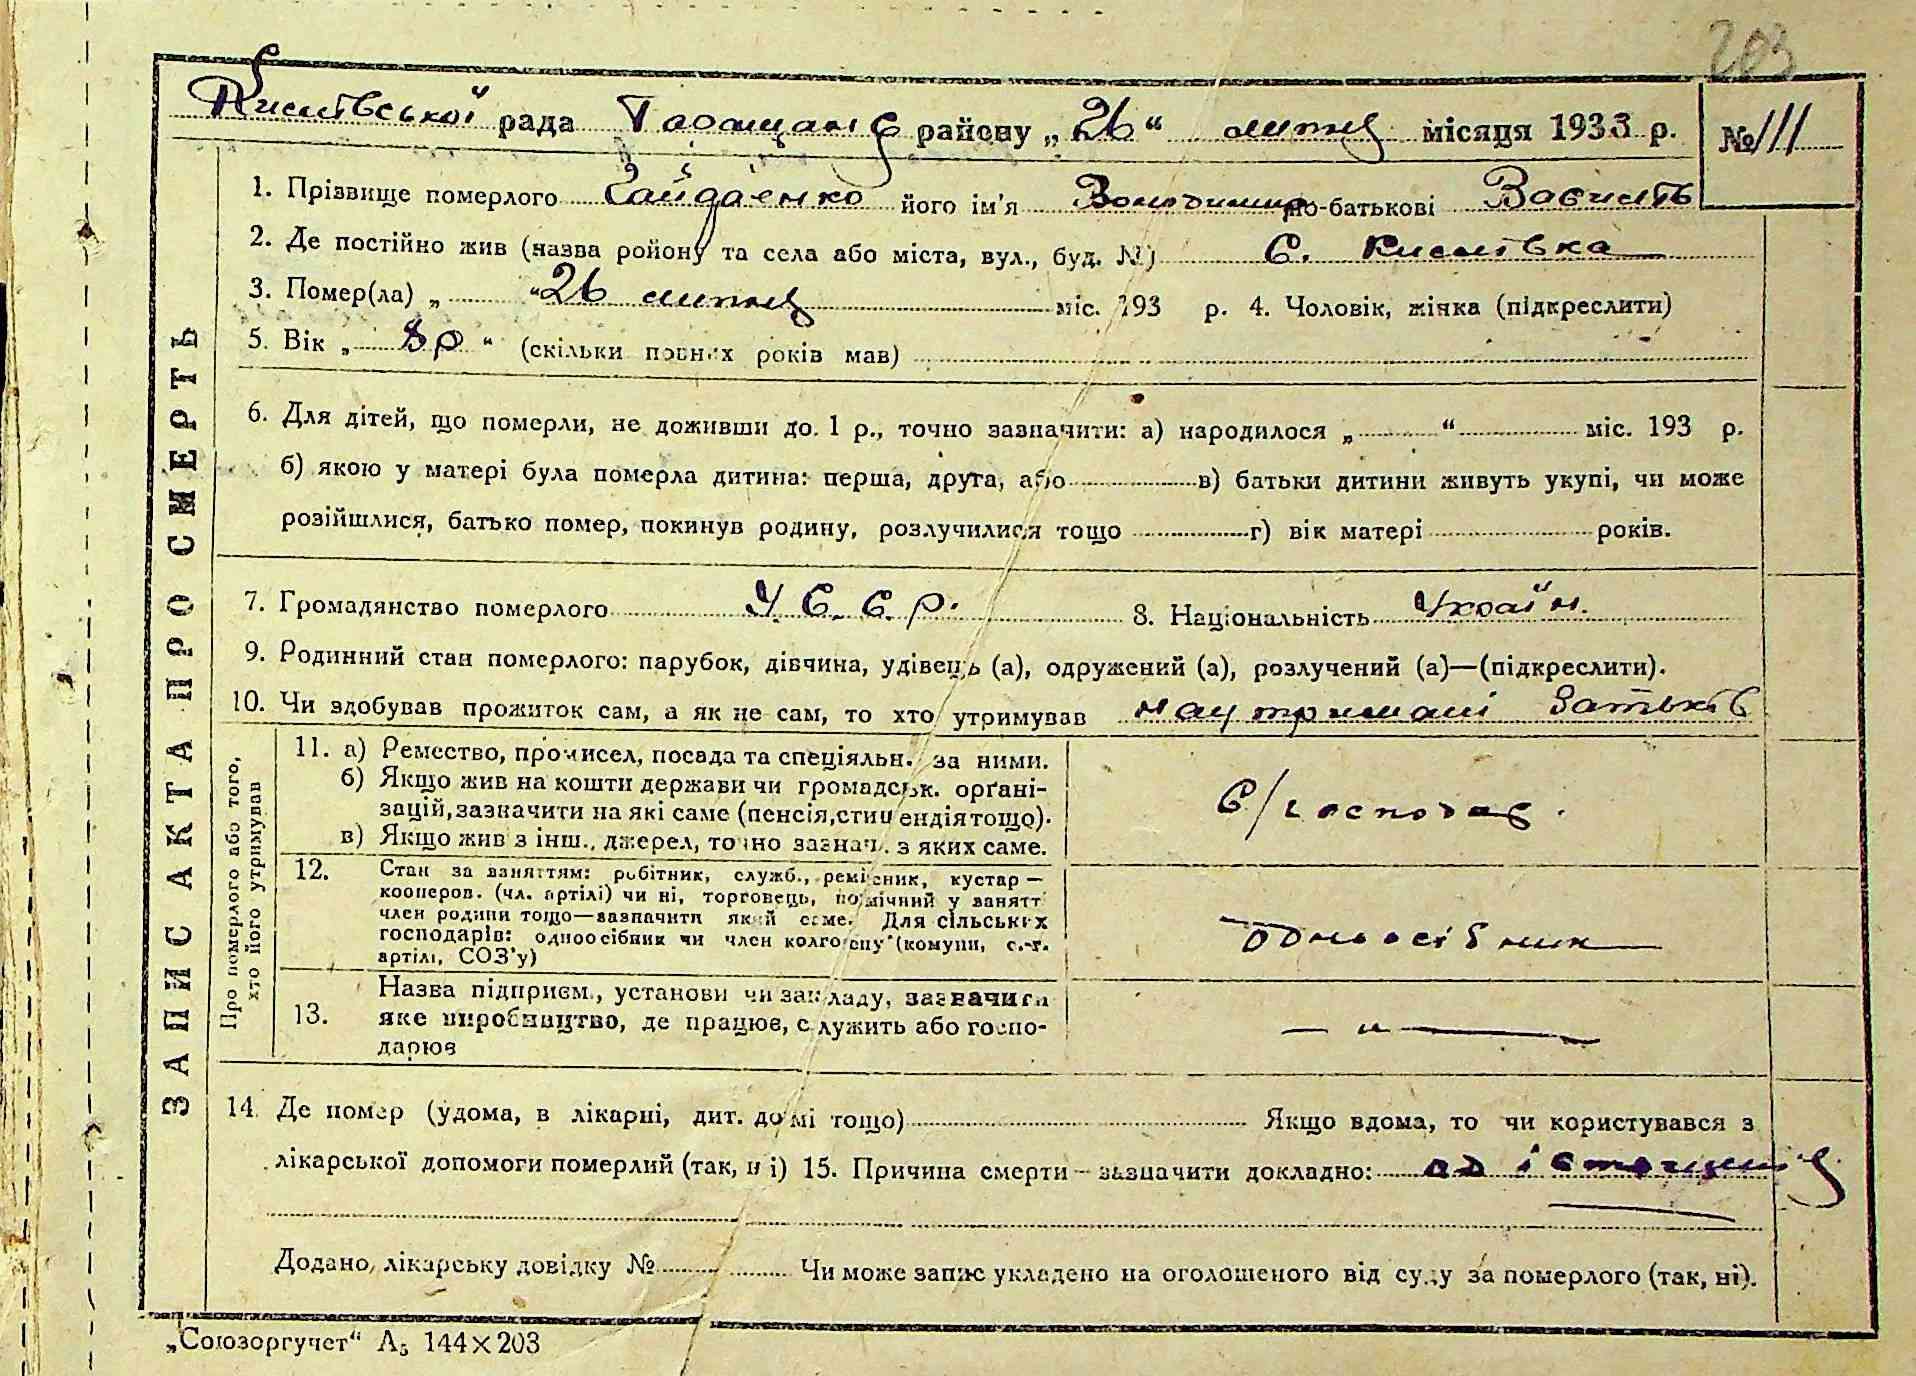 203
Кислівської рада Таращанс районy „26“ липня місяця 1933 р. №111
ЗАПИС АКТА ПРО СМЕРТЬ
1. Прізвище померлого Гайдаенко його ім'я Володимир по-батькові Василь
2. Де постійно жив (назва ройону та села або міста, вул., буд. №) с. Кислівка
3. Помер(ла) „ “26 липня міс. 193 р. 4. Чоловік, жінка (підкреслити)
5. Вік „ 8 р “ (скільки повних років мав)
6. Для дітей, що померли, не доживши до 1 р., точно зазначити: а) народилося „ “ міс. 193 р.
б) якою у матері була померла дитина: перша, друга, або в) батьки дитини живуть укупі, чи може
розійшлися, батько помер, покинув родину, розлучилися тощо г) вік матері років.
7. Громадянство померлого У.С.С.Р. 8. Національність Україн.
9. Родинний стан померлого: парубок, дівчина, удівець (а), одружений (а), розлучений (а)—(підкреслити).
10. Чи здобував прожиток сам, а як не сам, то хто утримував на утримані батьків
Про померлого або того,
хто його утримував
11. а) Ремество, промисел, посада та спеціяльн. за ними.
б) Якщо жив на кошти держави чи громадськ. орґані-
зацій, зазначити на які саме (пенсія, стипендія тощо).
в) Якщо жив з інш., джерел, точно зазнач. з яких саме.
С/господар.
12. Стан за заняттям: робітник, служб., ремісник, кустар —
кооперов. (чл. артілі) чи ні, торговець, помічний у занятт
член родини тощо—зазначити який саме. Для сільських
господарів: одноосібник чи член колгоспу (комуни, с.-г.
артілі, СОЗ'у)
одноосібник
13. Назва підприєм., установи чи закладу, зазначити
яке виробництво, де працює, служить або госпо-
дарює
— „ —
14. Де помер (удома, в лікарні, дит. домі тощо) Якщо вдома, то чи користувався з
лікарської допомоги померлий (так, ні) 15. Причина смерти—зазначити докладно: од істощения
Додано, лікарську довідку № Чи може запис укладено на оголошеного від суду за померлого (так, ні).
„Союзоргучет“ А₅ 144×203